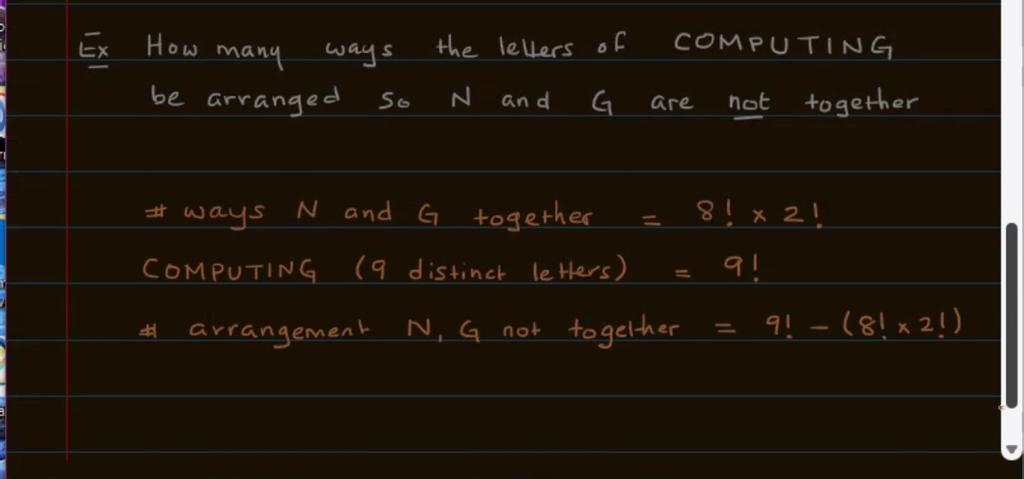 Ex How many ways the letters of COMPUTING
be arranged so N and G are not together
# ways N and G together = 8! x 2!
COMPUTING (9 distinct letters) = 9!
# arrangement N, G not together = 9! - (8! x 2!)